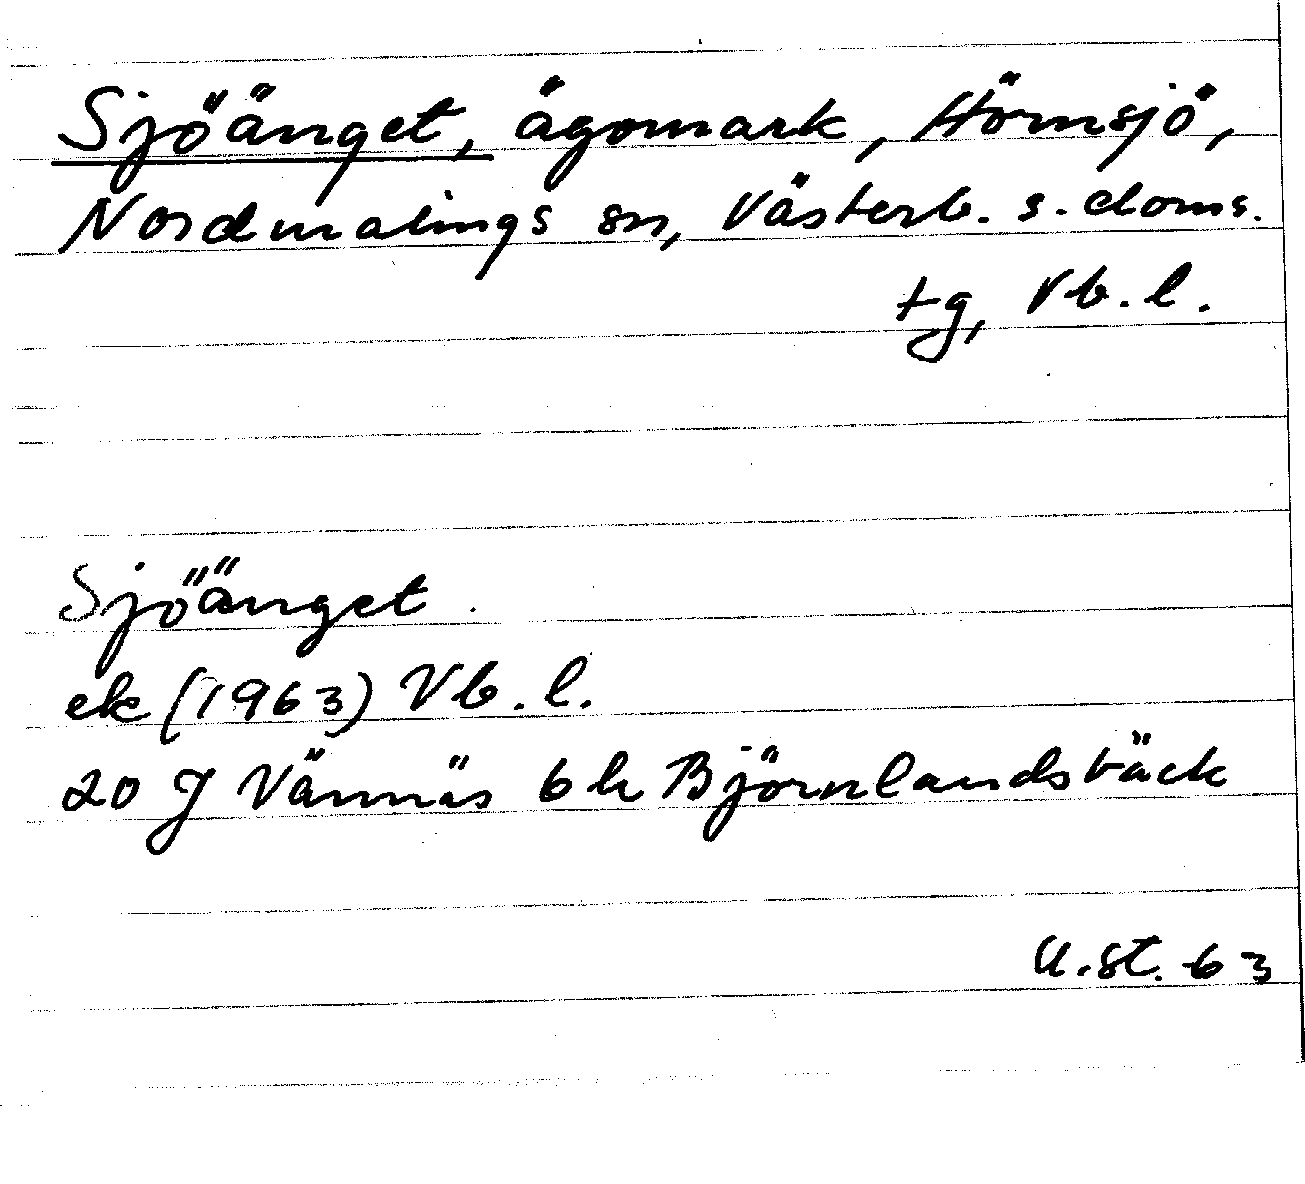 Sjöänget, ägomark, Hörnsjö,
Nordmalings sn, Västerb. s. doms.
tg, Vb. l.
Sjöänget
ek (1963) Vb. l.
20 J Vännäs 6 h Björnlandsbäck
U.St. 63